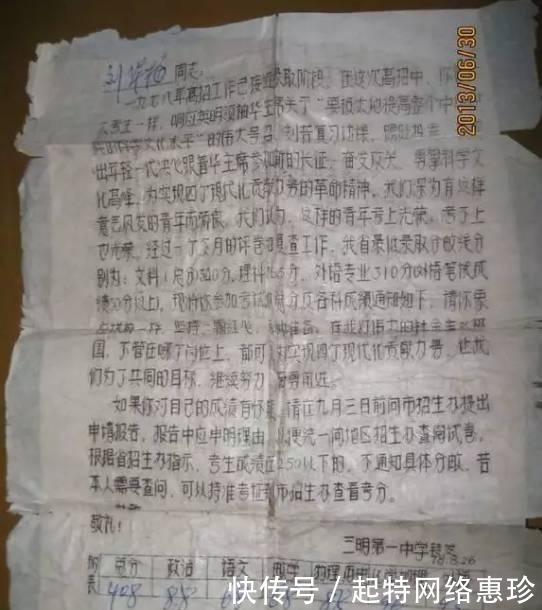 刘 同志:
一九七八年高招工作已 取阶段。在这次高招中,你
人考生一样,响应英明领袖华主席关于“要极大地提高整个中
族的科学文化水平”的伟大号召,刻苦复习功课,踊跃报
出年轻一代决心跟着华主席参 新的长征,奋发 ,勇攀科学文
化高峰,为实现四个现代化贡献力 的革命精神。我们深为有这样
意气风发的青年而 。我们认为,这样的青年考上光荣,考不上
也光荣。经过一个多月的评卷 复查工作,我省最低录取分数线分
别为:文科(总分)300分,理科 5分,外语专业310分(外语笔试成
绩 0分以上)。现将你参加考试 总分及各科成绩通知如下,请你象
一样,坚持一颗红心, 准备,在我们伟大的社会主义祖
国,不管在哪个岗位上,都可 为实现四个现代化贡献力量。让我
们为了共同的目标,继续努力, 前进。
如果你对自己的成绩有怀疑,请在九月三日前向市招生办提出
申请报告,报告中应申明理由,以便统一向地区招生办查阅试卷。
根据省招生办指示,考生成绩在250以下的,不通知具体分数,若
本人需要查问,可以持准考证到市招生办查看考分。
敬礼!
三明第一中学
78.8.26
总分 政治 语文 数学 物理
408 85
2013/06/30
快传号 / 起特网络惠珍